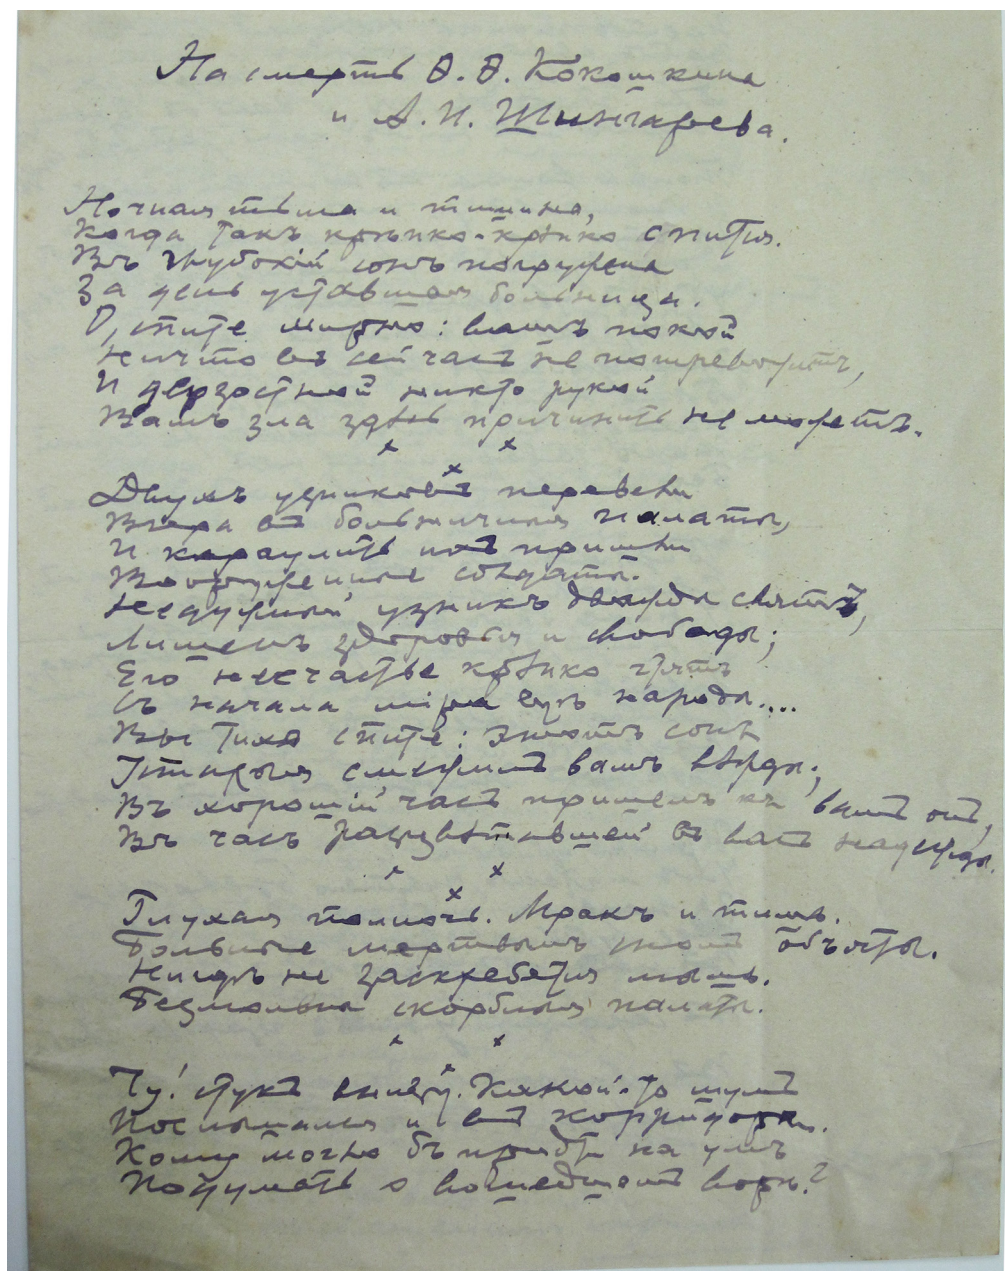 На смерть Ѳ. Ѳ. Кокошкина
и А. И. Шингарева.
Ночная тьма и тишина,
Когда такъ крѣпко-крѣпко спится.
Въ глубокій сонъ погружена
За день уставшая больница.
О, спите мирно: вашъ покой
Ничто въ сей часъ не потревожитъ,
И дерзостной никто рукой
Вамъ зла здѣсь причинить не можетъ.
x x
x
Двухъ узниковъ перевели
Вчера въ больничныя палаты,
И караулить ихъ пришли
Вооруженные солдаты.
Недужный узникъ дважды святъ,
Лишенъ здоровья и свободы;
Его несчастье крѣпко чтятъ
Съ начала міра всѣ народы....
Вы тихо спите: этотъ сонъ
смежилъ вамъ вѣжды;
Въ хорошій часъ пришелъ къ вамъ онъ,
Въ часъ расцвѣтавшей въ васъ надежды.
x x
x
Глухая полночь. Мракъ и тишь.
Больные мертвымъ сномъ объяты.
Нигдѣ не заскребется мышь.
Безмолвны скорбныя палаты.
x x
x
Чу! стукъ внизу. Какой-то шумъ
Послышался и въ корридорѣ.
Кому могло бъ придти на умъ
Подумать о вошедшемъ ворѣ?